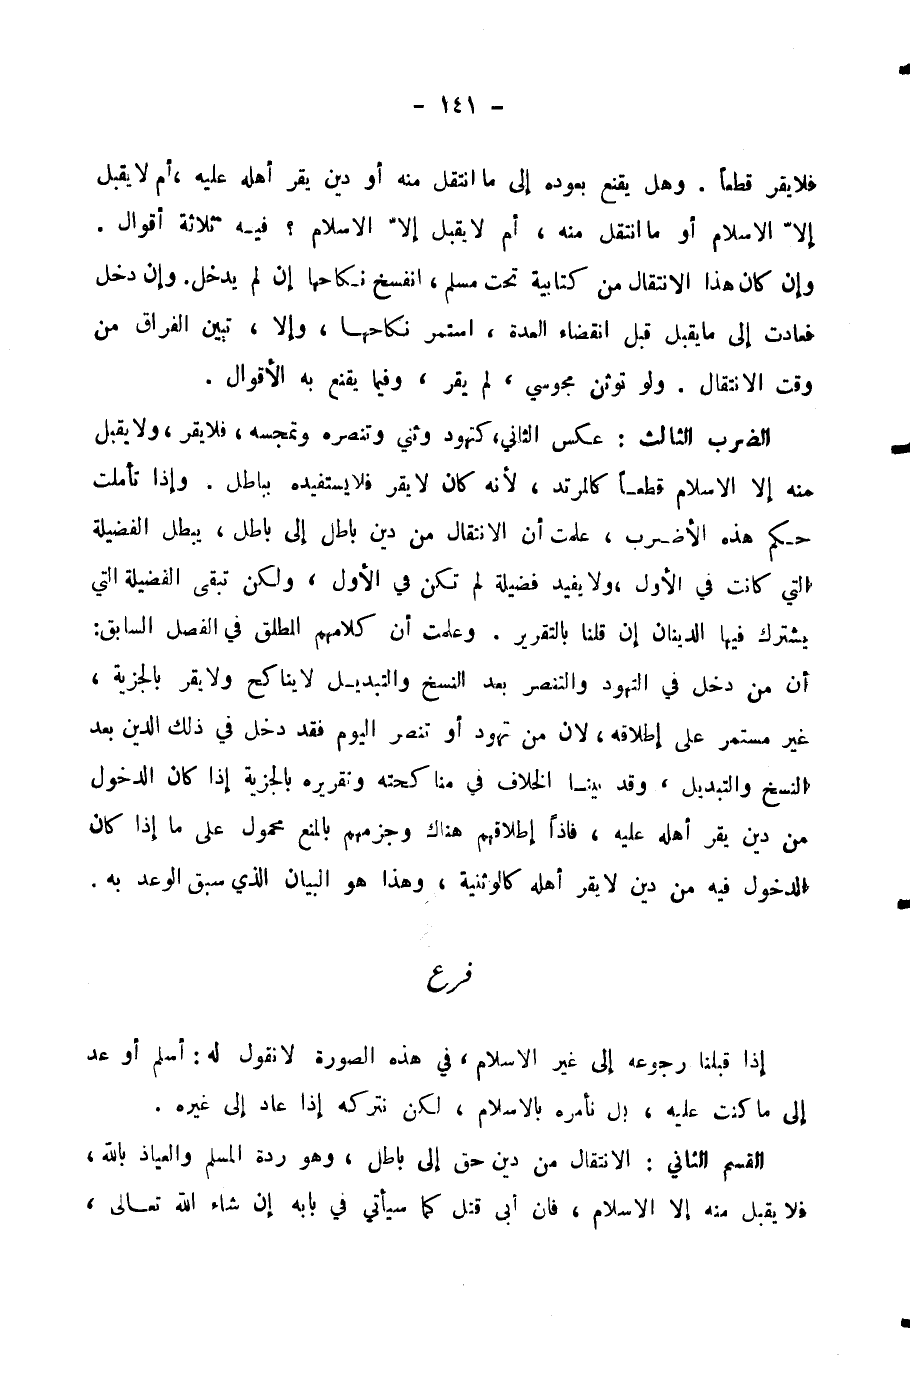 - ١٤١ -
فلايقر قطعاً . وهل يقنع بعوده إلى ما انتقل منه أو دين يقر أهله عليه ، أم لا يقبل
إلاّ الاسلام أو ما انتقل منه ، أم لا يقبل إلاّ الاسلام ؟ فيه ثلاثة أقوال .
وإن كان هذا الانتقال من كتابية تحت مسلم ، انفسخ نكاحها إن لم يدخل . وإن دخل
فعادت إلى مايقبل قبل انقضاء العدة ، استمر نكاحها ، وإلا ، تبين الفراق من
وقت الانتقال . ولو توثن مجوسي ، لم يقر ، وفيما يقنع به الأقوال .
الضرب الثالث : عكس الثاني، كتهود وثني وتنصره وتمجسه ، فلايقر ، ولا يقبل
منه إلا الاسلام قطعاً كالمرتد ، لأنه كان لايقر فلايستفيده بباطل . وإذا تأملت
حكم هذه الأضرب ، علمت أن الانتقال من دين باطل إلى باطل ، يبطل الفضيلة
التي كانت في الأول ، ولا يفيد فضيلة لم تكن في الأول ، ولكن تبقى الفضيلة التي
يشترك فيها الدينان إن قلنا بالتقرير . وعلمت أن كلامهم المطلق في الفصل السابق:
أن من دخل في التهود والتنصر بعد النسخ والتبديل لايناكح ولايقر بالجزية ،
غير مستمر على إطلاقه ، لان من تهود أو تنصر اليوم فقد دخل في ذلك الدين بعد
النسخ والتبديل ، وقد بينا الخلاف في مناكحته وتقريره بالجزية إذا كان الدخول
من دين يقر أهله عليه ، فاذاً إطلاقهم هناك وجزمهم بالمنع محمول على ما إذا كان
الدخول فيه من دين لايقر أهله كالوثنية ، وهذا هو البيان الذي سبق الوعد به .
فرع
إذا قبلنا رجوعه إلى غير الاسلام ، في هذه الصورة لانقول له : أسلم أو عد
إلى ما كنت عليه ، بل نأمره بالاسلام ، لكن نتركه إذا عاد إلى غيره .
القسم الثاني : الانتقال من دين حق إلى باطل ، وهو ردة المسلم والعياذ بالله ،
فلا يقبل منه إلا الاسلام ، فان أبى قتل كما سيأتي في بابه إن شاء الله تعالى ،